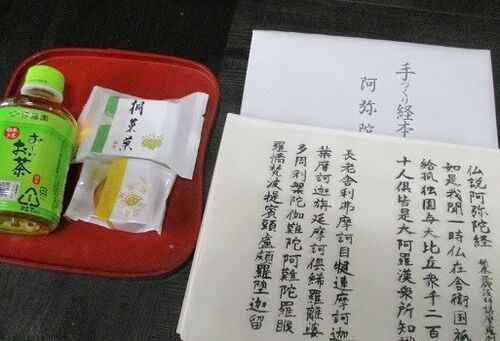 伊藤園
お〜いお茶
桐葉菓
手つくり経本
阿弥陀
仏説阿弥陀経
如是我聞一時仏在舎衛国祇
給孤独園与大比丘衆千二百
十人倶皆是大阿羅漢衆所知
長老舎利弗摩訶目犍連摩訶迦
葉摩訶迦旃延摩訶倶絺羅離婆
多周利槃陀伽難陀阿難陀羅睺
羅憍梵波提賓頭盧頗羅堕迦留